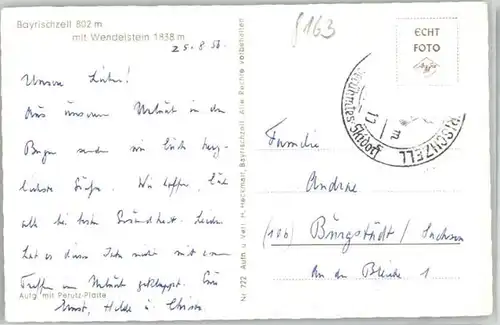 Bayrischzell 802 m
mit Wendelstein 1838 m
25.8.58.
Unsere Lieben!
Aus unserem Urlaub in den
Bergen senden wir Euch herz-
lichste Grüße. Wir hoffen, Euch
alle bei bester Gesundheit. Leider
hat es dieses Jahr nicht mit einem
Treffen im Urlaub geklappt. Eure
Ernst, Hilde u. Christa
Aufg. mit Perutz-Platte
Nr. 722 Aufn. u. Verl. H. Heckmair, Bayrischzell. Alle Rechte vorbehalten
8163
ECHT
FOTO
BAYRISCHZELL
Familie
Andrae
(10b) Burgstädt / Sachsen
An der Bleiche 1